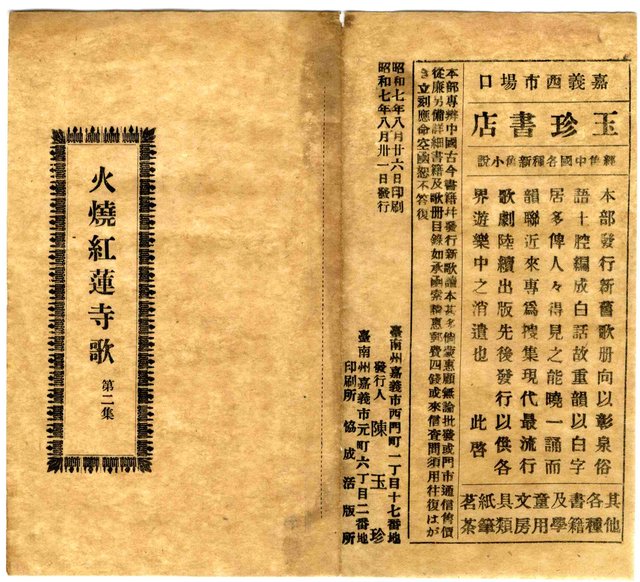 嘉義西市場口
玉珍書店
經售中國各種新舊小說
本部發行新舊歌册向以彰泉俗
語十腔編成白話故重韻以白字
居多俾人々得見之能曉一誦而
韻聯近來專爲搜集現代最流行
歌劇陸續出版先後發行以供各
界遊樂中之消遣也　此啓
其他各種書籍及學童用文房具類紙筆茗茶
本部專辦中國古今書籍幷發行新歌讀本甚多倘蒙惠顧無論批發或門市通信售價
從廉另備詳細書籍及歌册目錄如承函索請惠郵費四錢或來信査問須用往復はが
き立刻應命空函恕不答復
昭和七年八月廿六日印刷
昭和七年八月卅一日發行
臺南州嘉義市西門町一丁目十七番地
發行人　陳玉珍
臺南州嘉義市元町六丁目二番地
印刷所　協成活版所
火燒紅蓮寺歌　第二集